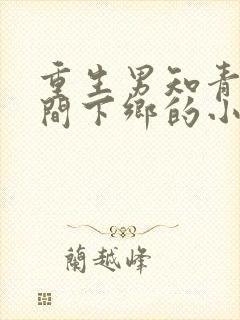 重生男知青
間下鄉的小
蘭越峰